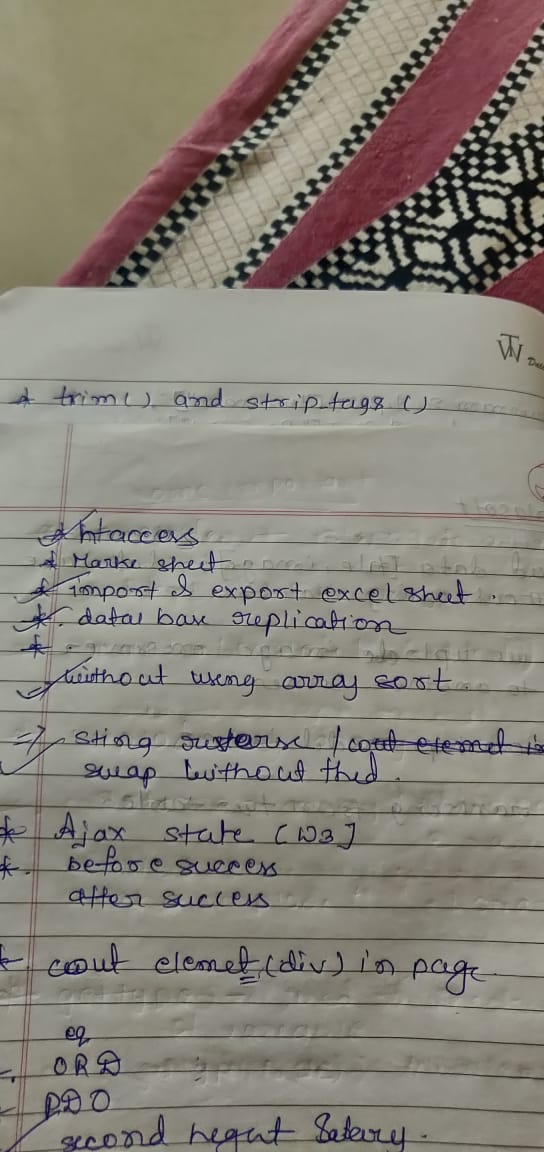 * trim() and strip_tags ()
* htaccess
* Marke sheet
* import & export excel sheet.
* data base replication
*
without using array sort.
=> Sting / cout elemet in
swap without thed.
* Ajax state [W3]
*. before success
after success
* cout elemet (div) in page.
eq
ORD
PDO
second heqat Salary.